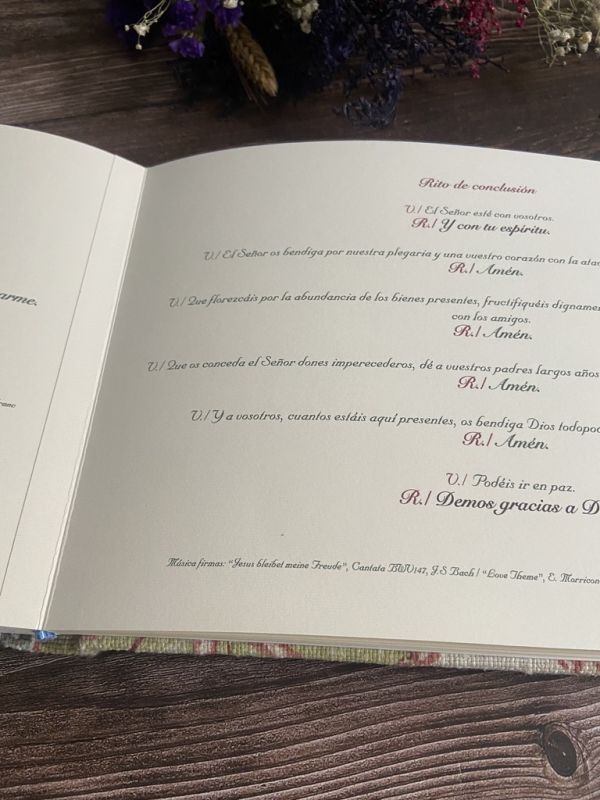 arme.
Rito de conclusión
V./ El Señor esté con vosotros.
R./ Y con tu espíritu.
V./ El Señor os bendiga por nuestra plegaria y una vuestro corazón con la
R./ Amén.
V./ Que florezcáis por la abundancia de los bienes presentes, fructifiquéis
con los amigos.
R./ Amén.
V./ Que os conceda el Señor dones imperecederos, dé a vuestros padres largos años
R./ Amén.
V./ Y a vosotros, cuantos estáis aquí presentes, os bendiga Dios
R./ Amén.
V./ Podéis ir en paz.
R./ Demos gracias a D
Música firmas: "Jesus bleibet meine Freude", Cantata BWV147, J.S Bach / "Love Theme", E.